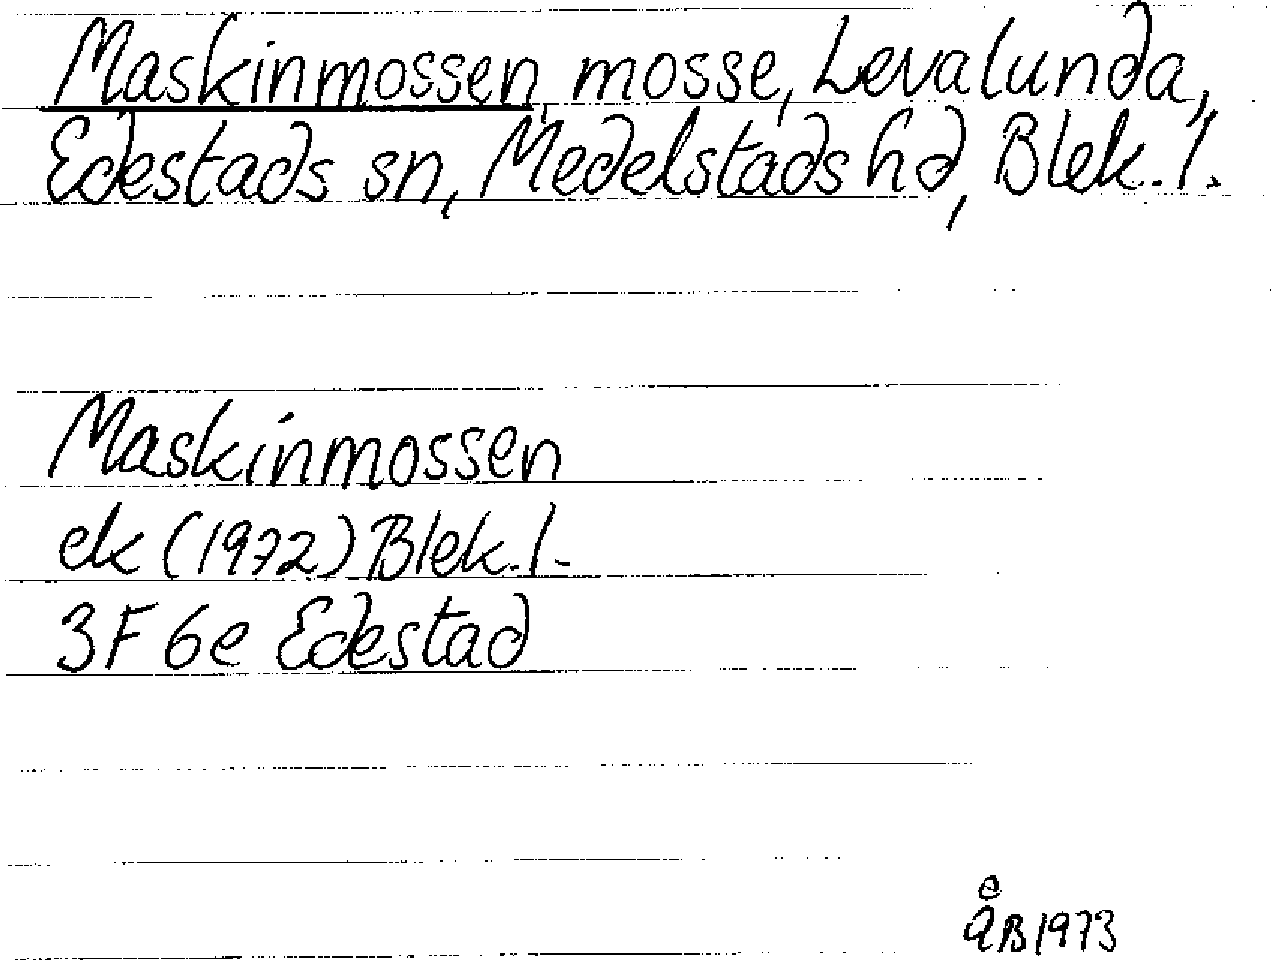 Maskinmossen, mosse, Levalunda,
Edestads sn, Medelstads hd, Blek. l.
Maskinmossen
ek (1972) Blek. l.
3F 6e Edestad
ÅB 1973